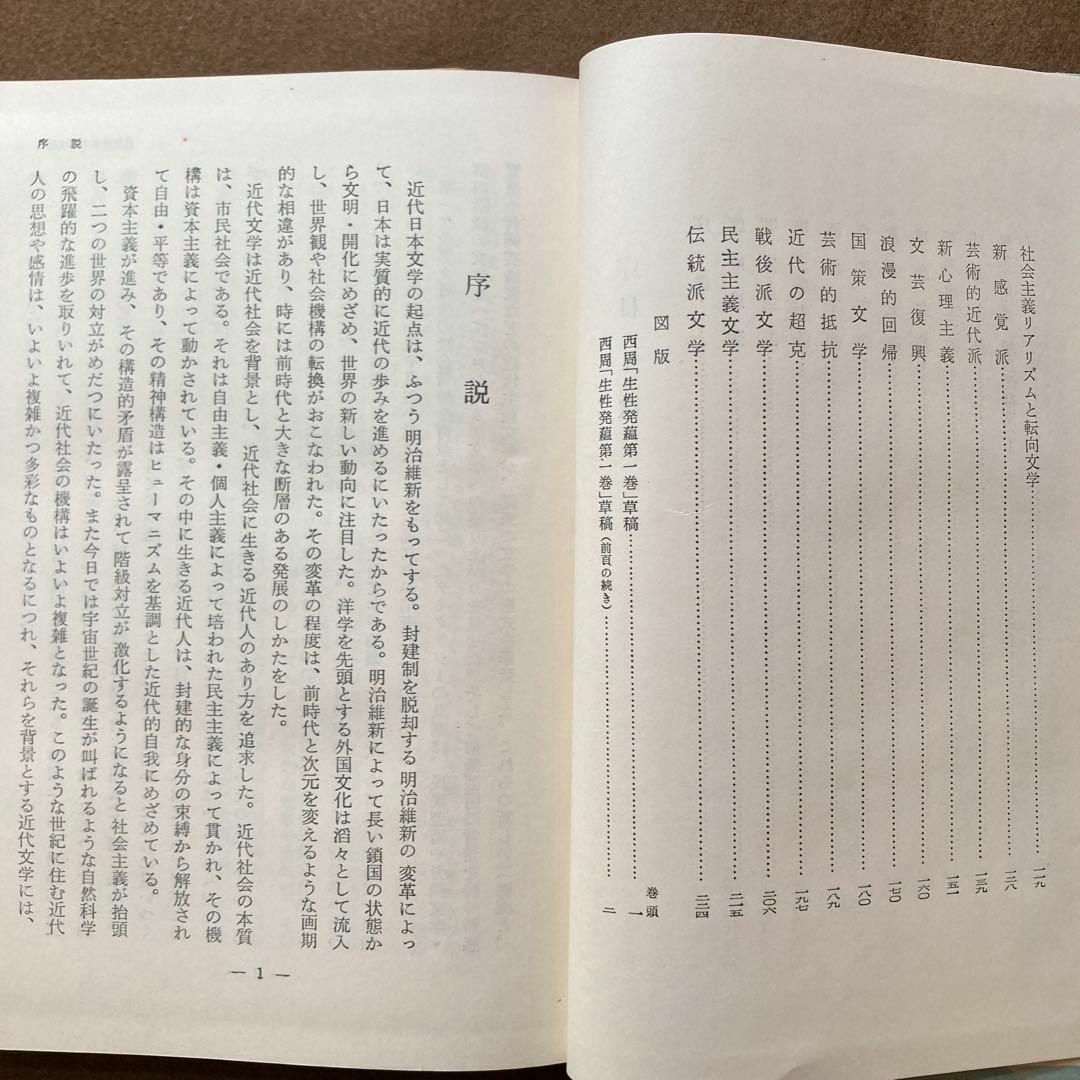 社会主義リアリズムと転向文学……一一九
新感覚派……一二八
芸術的近代派……一三九
新心理主義……一五一
文芸復興……一六〇
浪漫的回帰……一七〇
国策文学……一八〇
芸術的抵抗……一八九
近代の超克……一九七
戦後派文学……二〇六
民主主義文学……二一五
伝統派文学……二二四
図版
巻頭
西周「生性発蘊第一巻」草稿……一
西周「生性発蘊第一巻」草稿(前頁の続き)……二
序説
序説
近代日本文学の起点は、ふつう明治維新をもってする。封建制を脱却する明治維新の変革によっ
て、日本は実質的に近代の歩みを進めるにいたったからである。明治維新によって長い鎖国の状態か
ら文明・開化にめざめ、世界の新しい動向に注目した。洋学を先頭とする外国文化は滔々として流入
し、世界観や社会機構の転換がおこなわれた。その変革の程度は、前時代と次元を変えるような画期
的な相違があり、時には前時代と大きな断層のある発展のしかたをした。
近代文学は近代社会を背景とし、近代社会に生きる近代人のあり方を追求した。近代社会の本質
は、市民社会である。それは自由主義・個人主義によって培われた民主主義によって貫かれ、その機
構は資本主義によって動かされている。その中に生きる近代人は、封建的な身分の束縛から解放され
て自由・平等であり、その精神構造はヒューマニズムを基調とした近代的自我にめざめている。
資本主義が進み、その構造的矛盾が露呈されて階級対立が激化するようになると社会主義が抬頭
し、二つの世界の対立がめだつにいたった。また今日では宇宙世紀の誕生が叫ばれるような自然科学
の飛躍的な進歩を取りいれて、近代社会の機構はいよいよ複雑となった。このような世紀に住む近代
人の思想や感情は、いよいよ複雑かつ多彩なものとなるにつれ、それらを背景とする近代文学には、
— 1 —